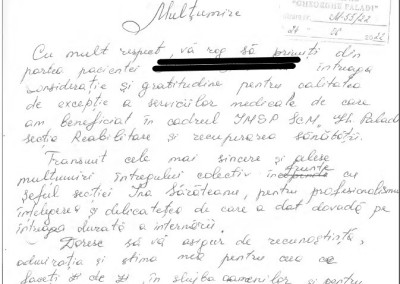 Mulțumire
"GHEORGHE PALADI"
M-55/22
Cu mult respect, vă rog să primiți din
partea pacientei întreaga
considerație și gratitudine pentru calitatea
de excepție a serviciilor medicale de care
am beneficiat în cadrul IMSP SCM, Gh. Paladi
secția Reabilitare și recuperarea sănătății.
Transmit cele mai sincere și alese
mulțumiri întregului colectiv cu
șeful secției pentru profesionalism
înțelegerea și delicatețea de care a dat dovadă pe
întreaga durată a internării.
Doresc să vă asigur de recunoștința,
admirația și stima mea pentru ceea ce
faceți zi de zi, în slujba oamenilor și pentru